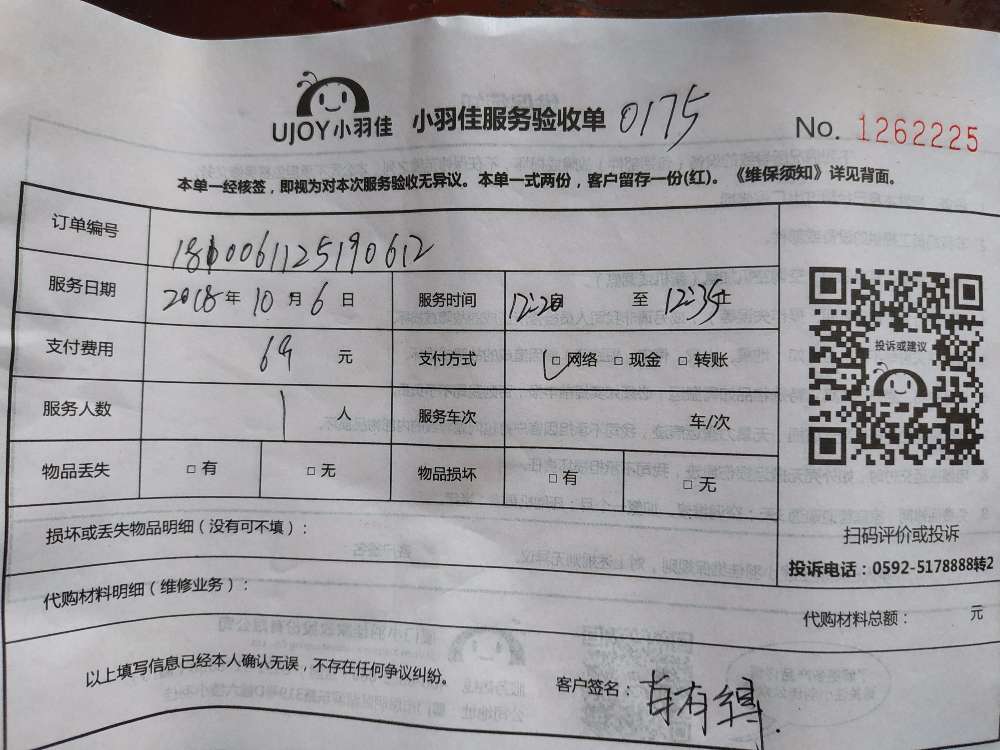 UJOY小羽佳 小羽佳服务验收单 0175 No. 1262225
本单一经核签，即视为对本次服务验收无异议。本单一式两份，客户留存一份(红)。《维保须知》详见背面。
订单编号 1810061125190612
服务日期 2018年10月6日 服务时间 12:20 至 12:35止
支付费用 69 元 支付方式 □网络 □现金 □转账
服务人数 1 人 服务车次 车/次
物品丢失 □有 □无 物品损坏 □有 □无
投诉或建议
损坏或丢失物品明细（没有可不填）：
扫码评价或投诉
投诉电话：0592-5178888转2
代购材料明细（维修业务）：
代购材料总额： 元
以上填写信息已经本人确认无误，不存在任何争议纠纷。
客户签名：